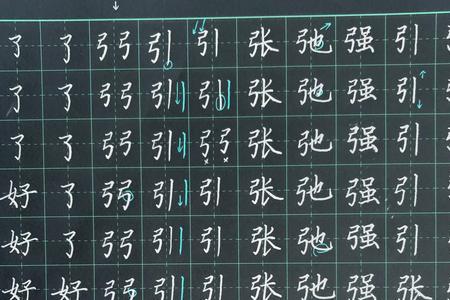 了 了 弓弓 引 引 张 弛 强 引
了 了 弓弓 引 引 张 弛 强 引
了 了 弓弓 引 弓弓 张 弛 强 引
好 了 弓弓 引 引 张 弛 强 引
好 了 弓弓 引 引 张 弛 强 引
好 好 弓弓 引 引 张 弛 强 张